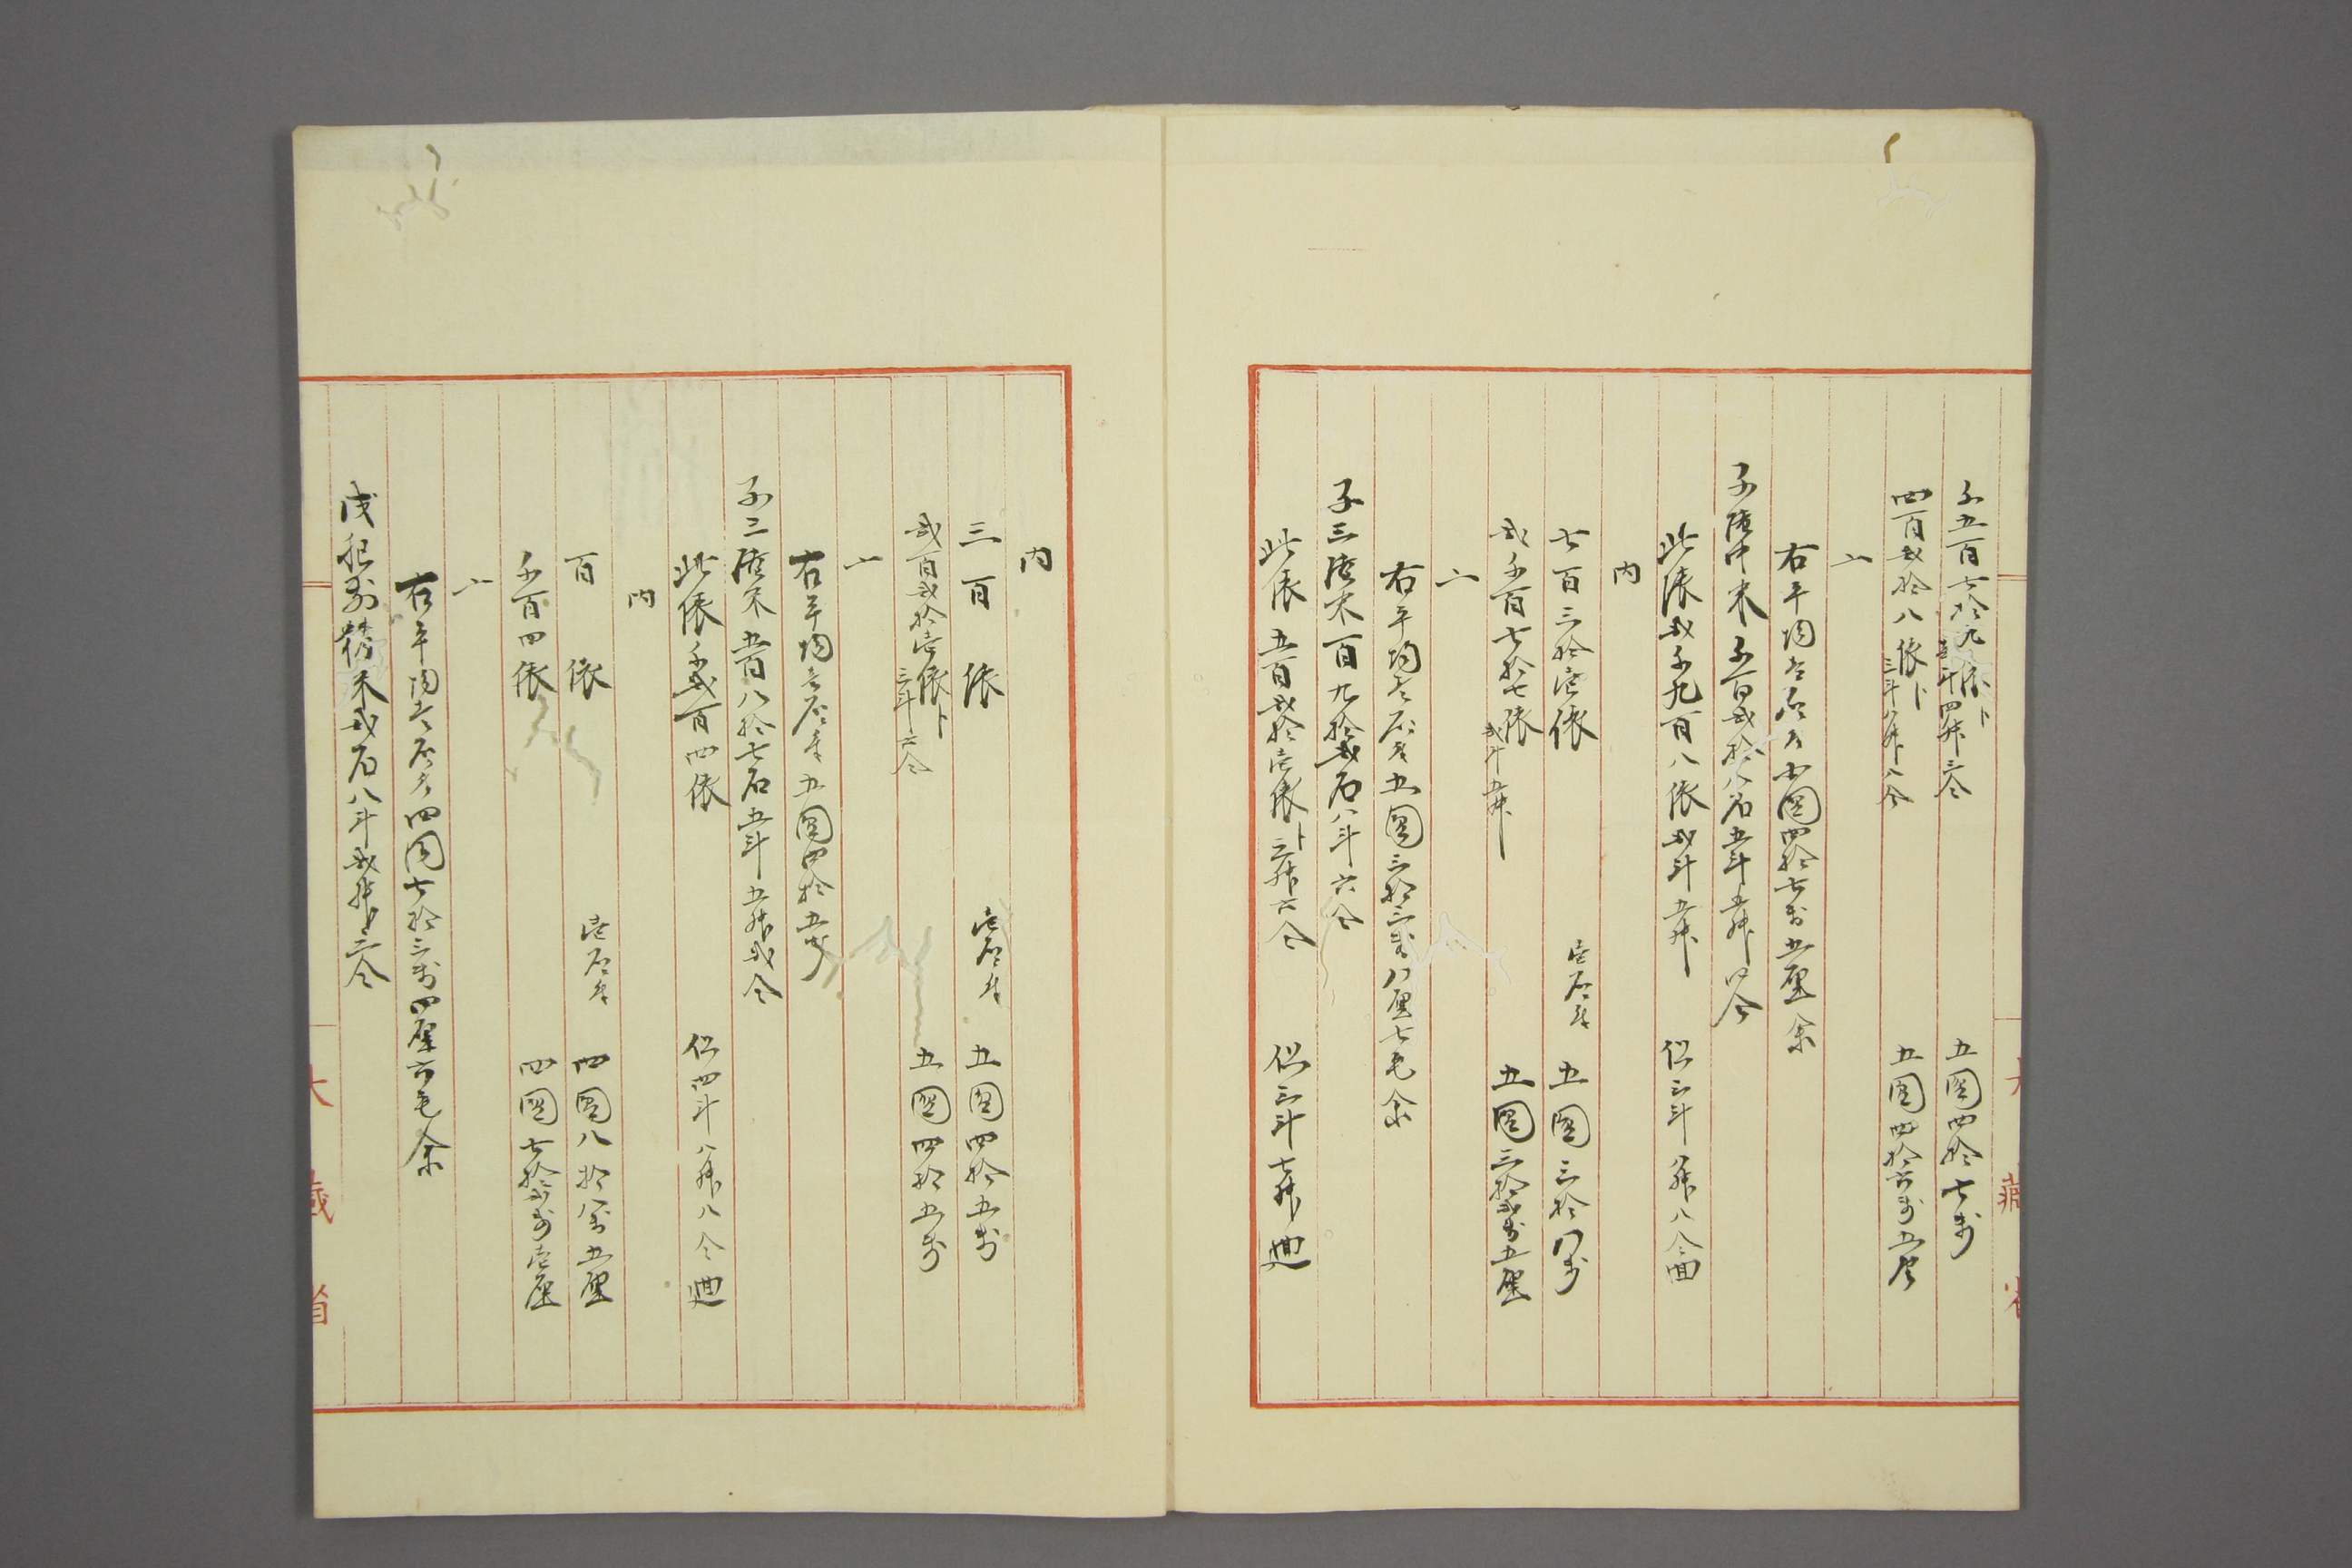 千五百七拾九俵ト 壱斗四升三合 五圓四拾七銭
四百弐拾八俵ト 三斗八升八合 五圓四拾六銭五厘
〆
右平均壱石ニ付五圓四拾七銭五厘余
子陸中米千百弐拾八石五斗五升四合
此俵弐千九百八俵弐斗五升 但三斗八升八合廻
内
七百三拾壱俵 壱石ニ付 五圓三拾四銭
弐千百七拾七俵 弐斗五升 五圓三拾弐銭五厘
〆
右平均壱石ニ付五圓三拾三銭八厘七毛余
子三陸米百九拾弐石八斗六合
此俵五百弐拾壱俵ト三升六合 但三斗七升廻
大藏省
内
三百俵 壱石ニ付 五圓四拾五銭
弐百弐拾壱俵ト 三升六合 五圓四拾五銭
〆
右平均壱石ニ付五圓四拾五銭
子二陸米五百八拾七石五斗五升弐合
此俵千弐百四俵 但四斗八升八合廻
内
百俵 壱石ニ付 四圓八拾八銭五厘
千百四俵 四圓七拾弐銭壱厘
〆
右平均壱石ニ付四圓七拾三銭四厘六毛余
米弐石八斗弐升三合
大藏省